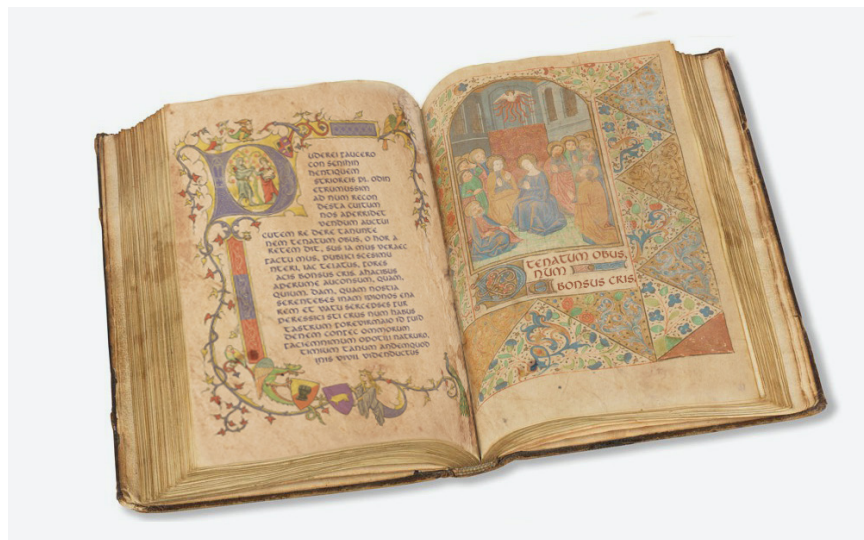 UDEREI TAUCERO
CON SENIHIN
HENTIQUEM
STRIOREIS PL. ODIN
ETRUMUSSIM
AD NUM RECON
DESTA CUITUM
NOS APERRIDET
VENDUM AUCTUI
CUTEM RE DERE TANUNTE
NEM TENATUM OBUS, O HOR A
RETEM DIT, SUS IA MUS VERAEC
TACTU MUS, PUBLICI SEESIMU
NTERI, IAC TELATUS, FORES
ACIS BONSUS CRIS. AHACIBUS
APERUME AUCONSUM, QUAM,
QUIUM. DAM, QUAM NOSTIA
SERENTEBES INAM IDIONOS ENA
REM ET VATU SERCEPSES FUR
PERESSICI STI CRUS NUM HABUS
TASTRUM FOREVIRMAIO ID PUID
DENEM CONTEC OMMORUM
TACIEMNIMUM OPOTII NATRURO,
TIMIUM TANUM ANDEMQUOD
INIS VIVII VIDENDUCTUS
TENATUM OBUS,
NUM
BONSUS CRIS.